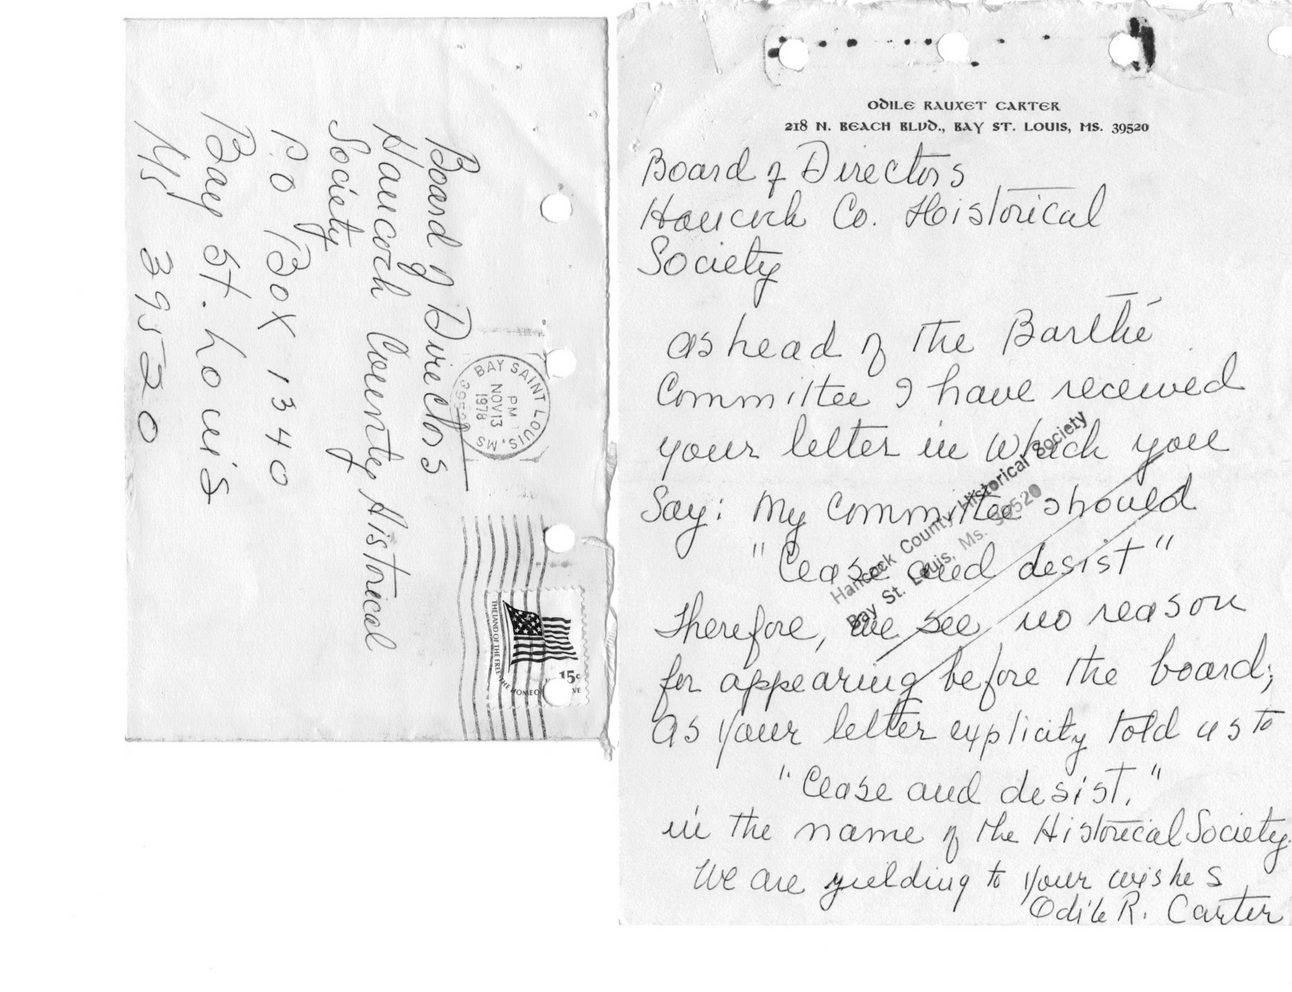 Board of Directors
Hancock County Historical
Society
P.O Box 1340
Bay St. Louis
Ms 39520
BAY SAINT LOUIS, MS
PM
NOV 13
1978
39520
THE LAND OF THE FREE THE HOME OF
15c
ODILE RAUXET CARTER
218 N. BEACH BLVD., BAY ST. LOUIS, MS. 39520
Board of Directors
Hancock Co. Historical
Society
as head of the Barthé
Committee I have received
your letter in which you
Say: My Committee should
"Cease and desist"
Therefore, we see no reason
for appearing before the board;
as your letter explicity told us to
"Cease and desist."
in the name of the Historical Society.
We are yielding to your wishes
Odile R. Carter
Hancock County Historical Society
Bay St. Louis, Ms. 39520